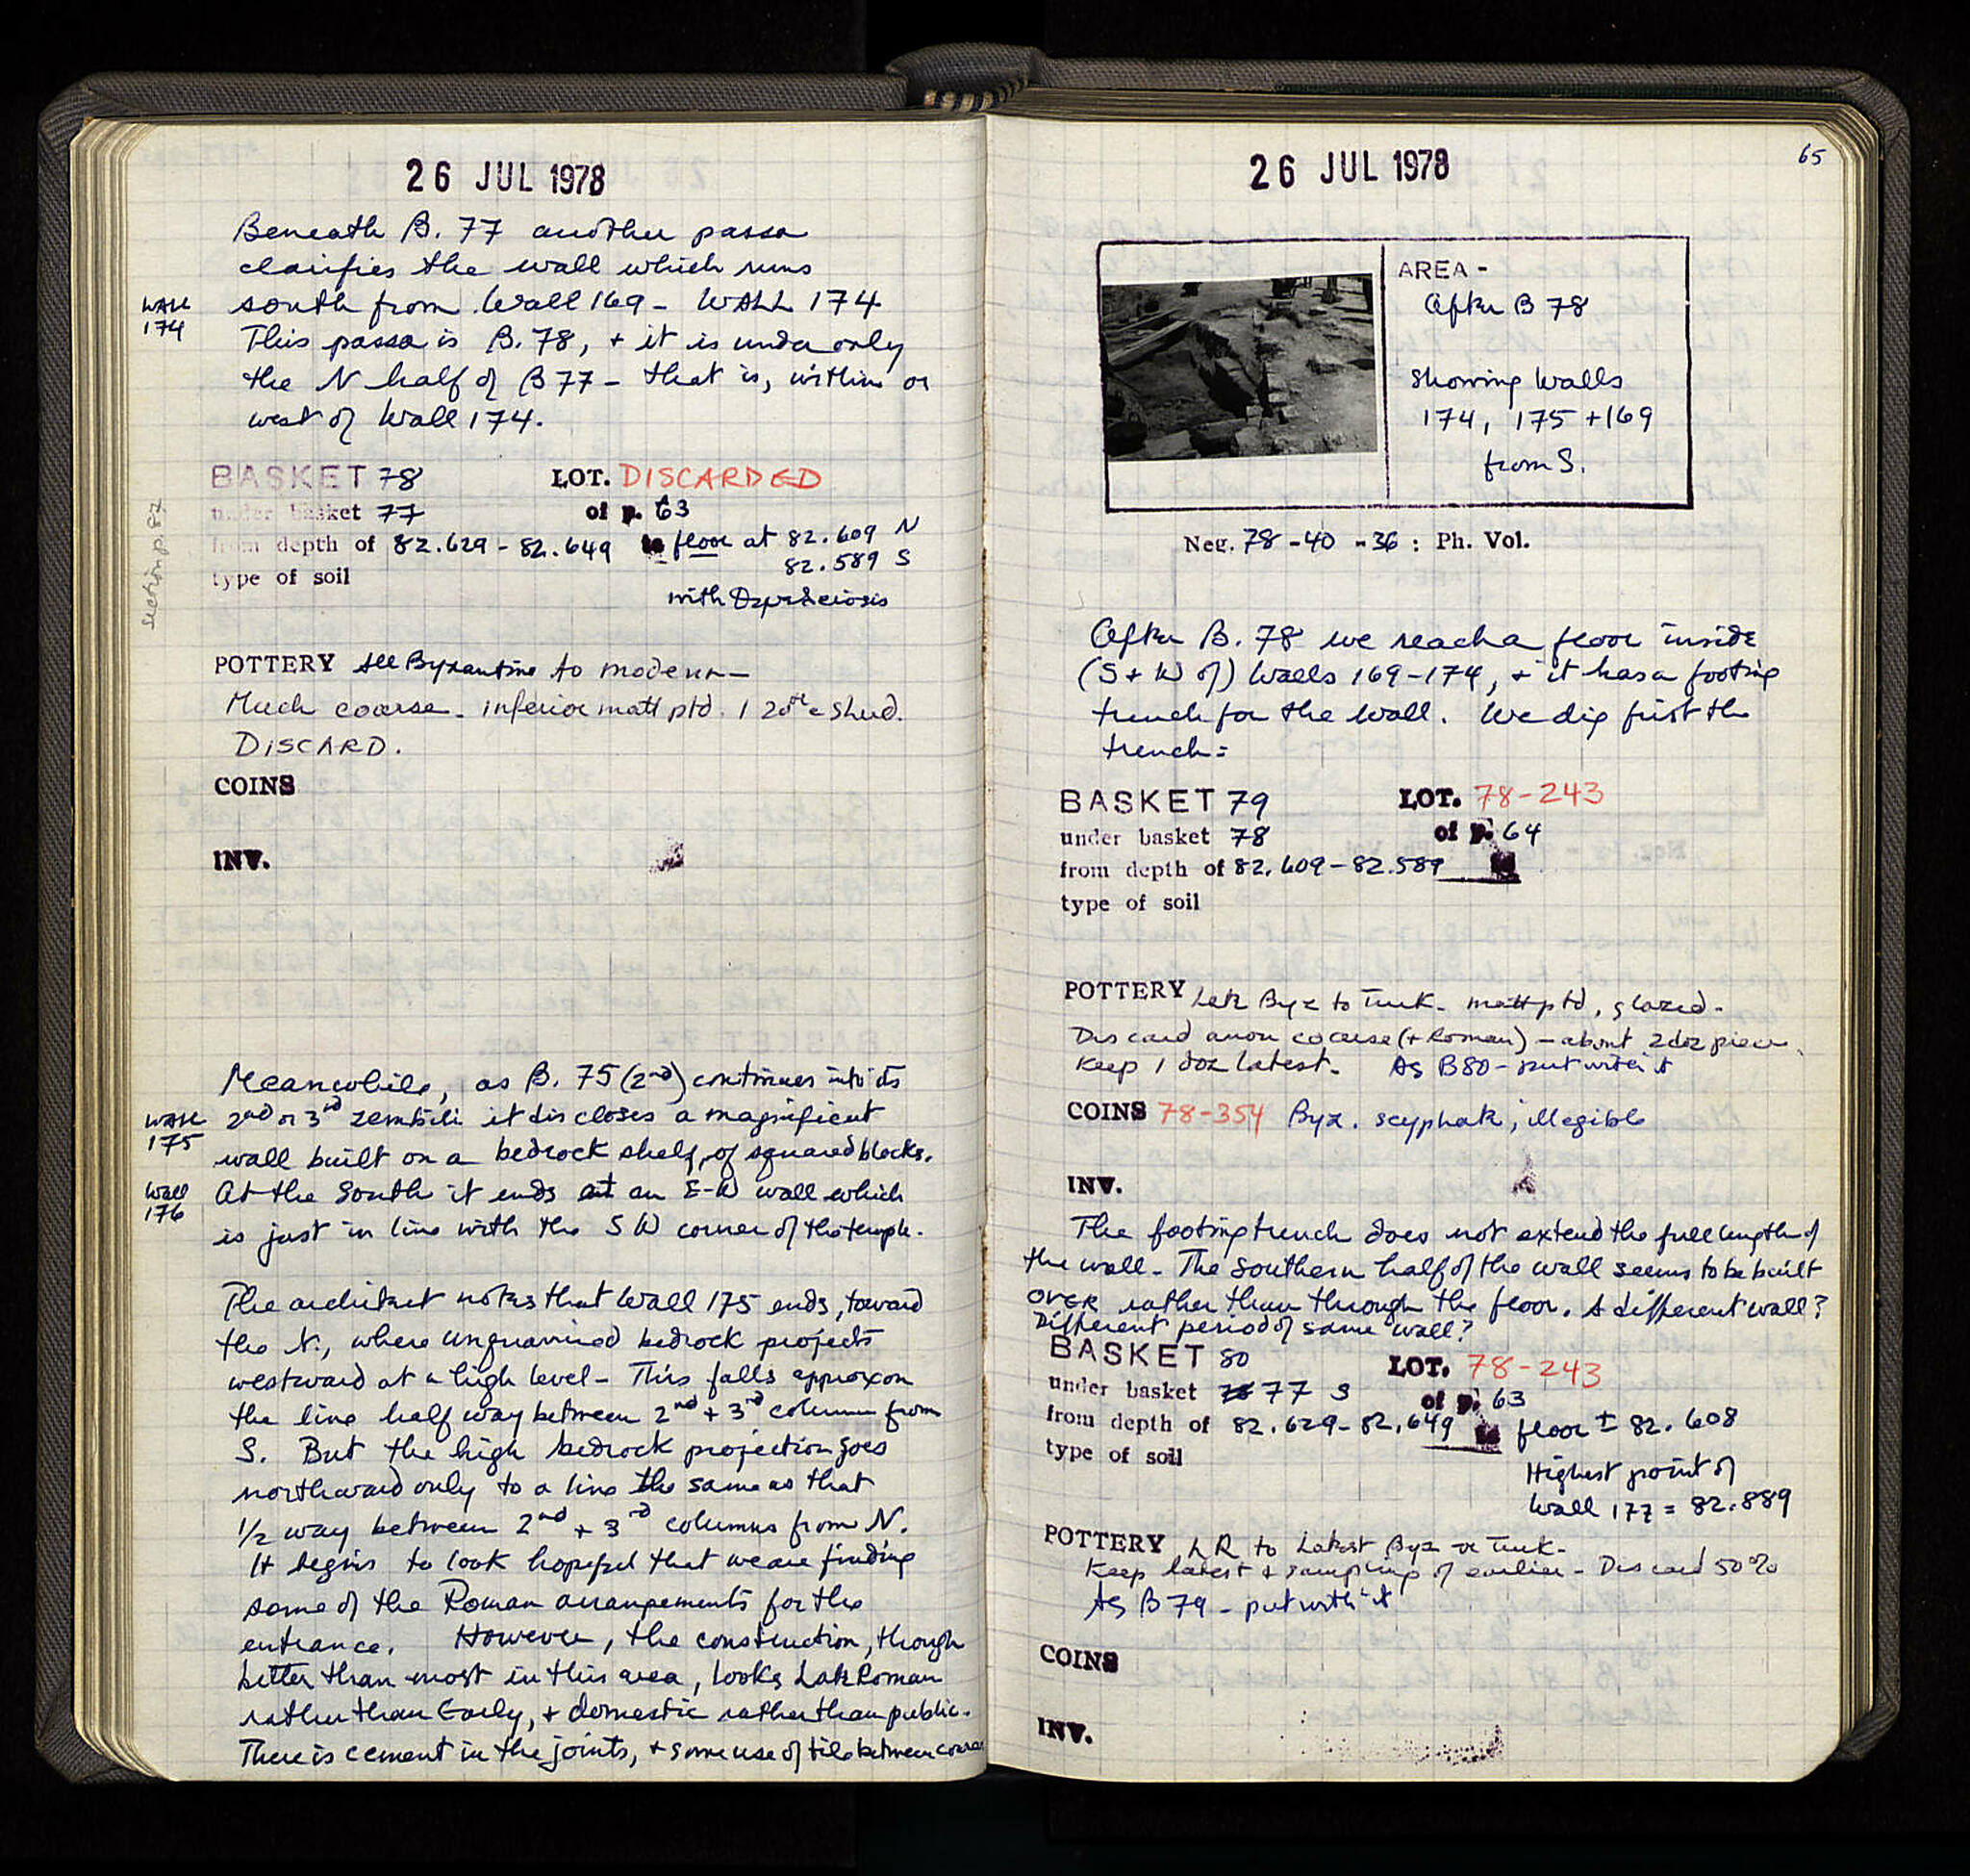 26 JUL 1978
Beneath B. 77 another passa
clarifies the wall which runs
WALL 174
south from Wall 169 - WALL 174
This passa is B. 78, + it is under only
the N half of B 77 - that is, within or
west of Wall 174.
BASKET 78 LOT. DISCARDED
under basket 77 of p. 63
from depth of 82.629 - 82.649 to floor at 82.609 N
82.589 S
type of soil
with
section p 87
POTTERY All Byzantine to modern -
Much coarse - inferior matt ptd. 1 20th c sherd.
DISCARD.
COINS
INV.
Meanwhile, as B. 75 (2nd) continues into its
WALL 175
2nd or 3rd zembili it discloses a magnificent
wall built on a bedrock shelf, of squared blocks.
Wall 176
At the South it ends at an E-W wall which
is just in line with the SW corner of the temple.
The architect notes that Wall 175 ends, toward
the N., where unquarried bedrock projects
westward at a high level - This falls approx on
the line half way between 2nd + 3rd column from
S. But the high bedrock projection goes
northward only to a line the same as that
1/2 way between 2nd + 3rd columns from N.
It begins to look hopeful that we are finding
some of the Roman arrangements for the
entrance. However, the construction, though
better than most in this area, looks Late Roman
rather than Early, + domestic rather than public.
There is cement in the joints, + some use of tile between courses
26 JUL 1978
65
AREA -
After B 78
showing Walls
174, 175 + 169
from S.
Neg. 78 - 40 - 36 : Ph. Vol.
After B. 78 we reach a floor inside
(S + W of) Walls 169-174, + it has a footing
trench for the wall. We dig first the
trench =
BASKET 79 LOT. 78-243
under basket 78 of p. 64
from depth of 82.609 - 82.589 to
type of soil
POTTERY Late Byz to Turk - matt ptd, glazed -
Discard anon coarse (+ Roman) - about 2 doz pieces.
Keep 1 doz latest. As B 80 - put with it
COINS 78-354 Byz. scyphate, illegible
INV.
The footing trench does not extend the full length of
the wall - The Southern half of the wall seems to be built
OVER rather than through the floor. A different wall?
Different period of same wall?
BASKET 80 LOT. 78-243
under basket 78 77 S of p. 63
from depth of 82.629 - 82.649 to floor ± 82.608
type of soil
Highest point of
Wall 177 = 82.889
POTTERY LR to Latest Byz or Turk -
Keep latest + sampling of earlier - Discard 50%
As B 79 - put with it
COINS
INV.